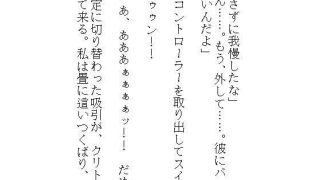 さずに我慢したな」
ん……。もう、外して……。彼にバ
いんだよ」
コントローラーを取り出してスイ
ゥゥン！！
あ、あああぁぁぁぁッ！！　だ
定に切り替わった吸引が、クリト
て来る。私は畳に這いつくばり、